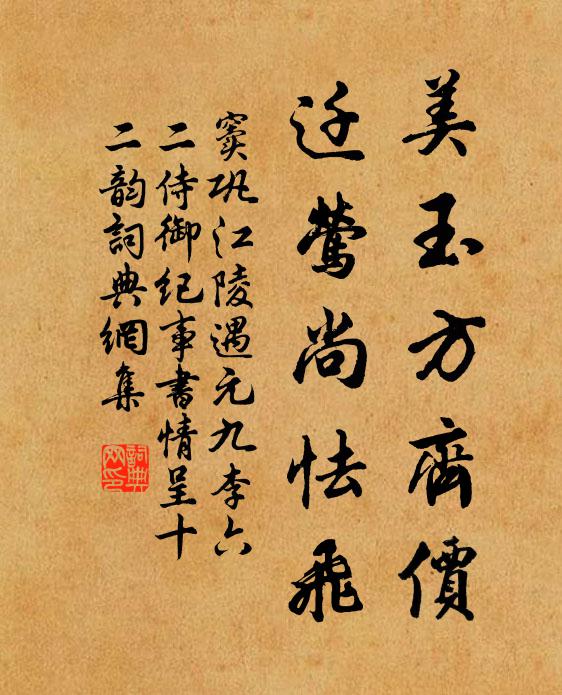 美玉方齊價
迁莺尚怯飛
窦巩江陵遇元九李六
二侍御纪事書情呈十
二韵詞典網集
詞典
网印